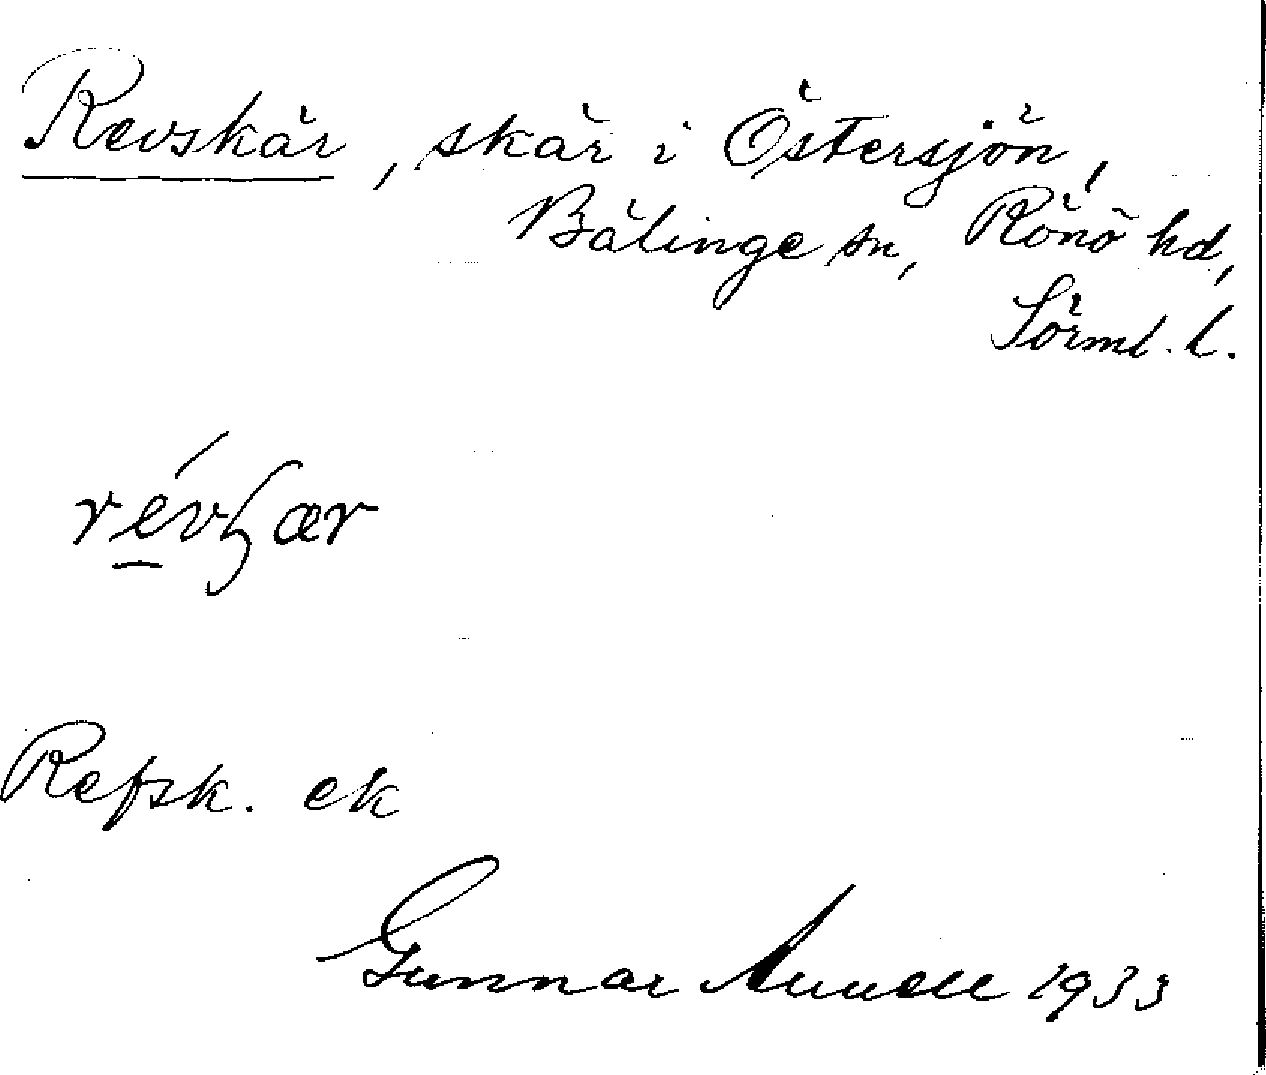 Revskär, skär i Östersjön,
Bälinge sn, Rönö hd,
Sörml. l.
révꞩær
Refsk. ek
Gunnar 1933